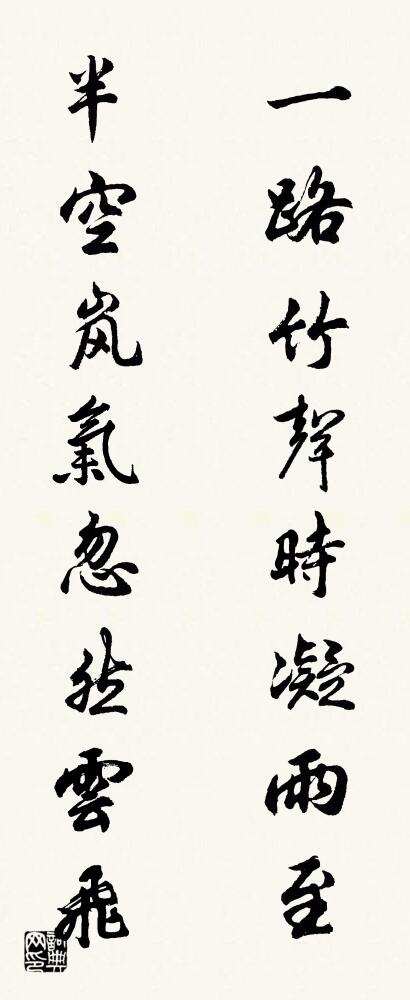 一路竹聲時凝雨至
半空嵐氣忽然雲飛